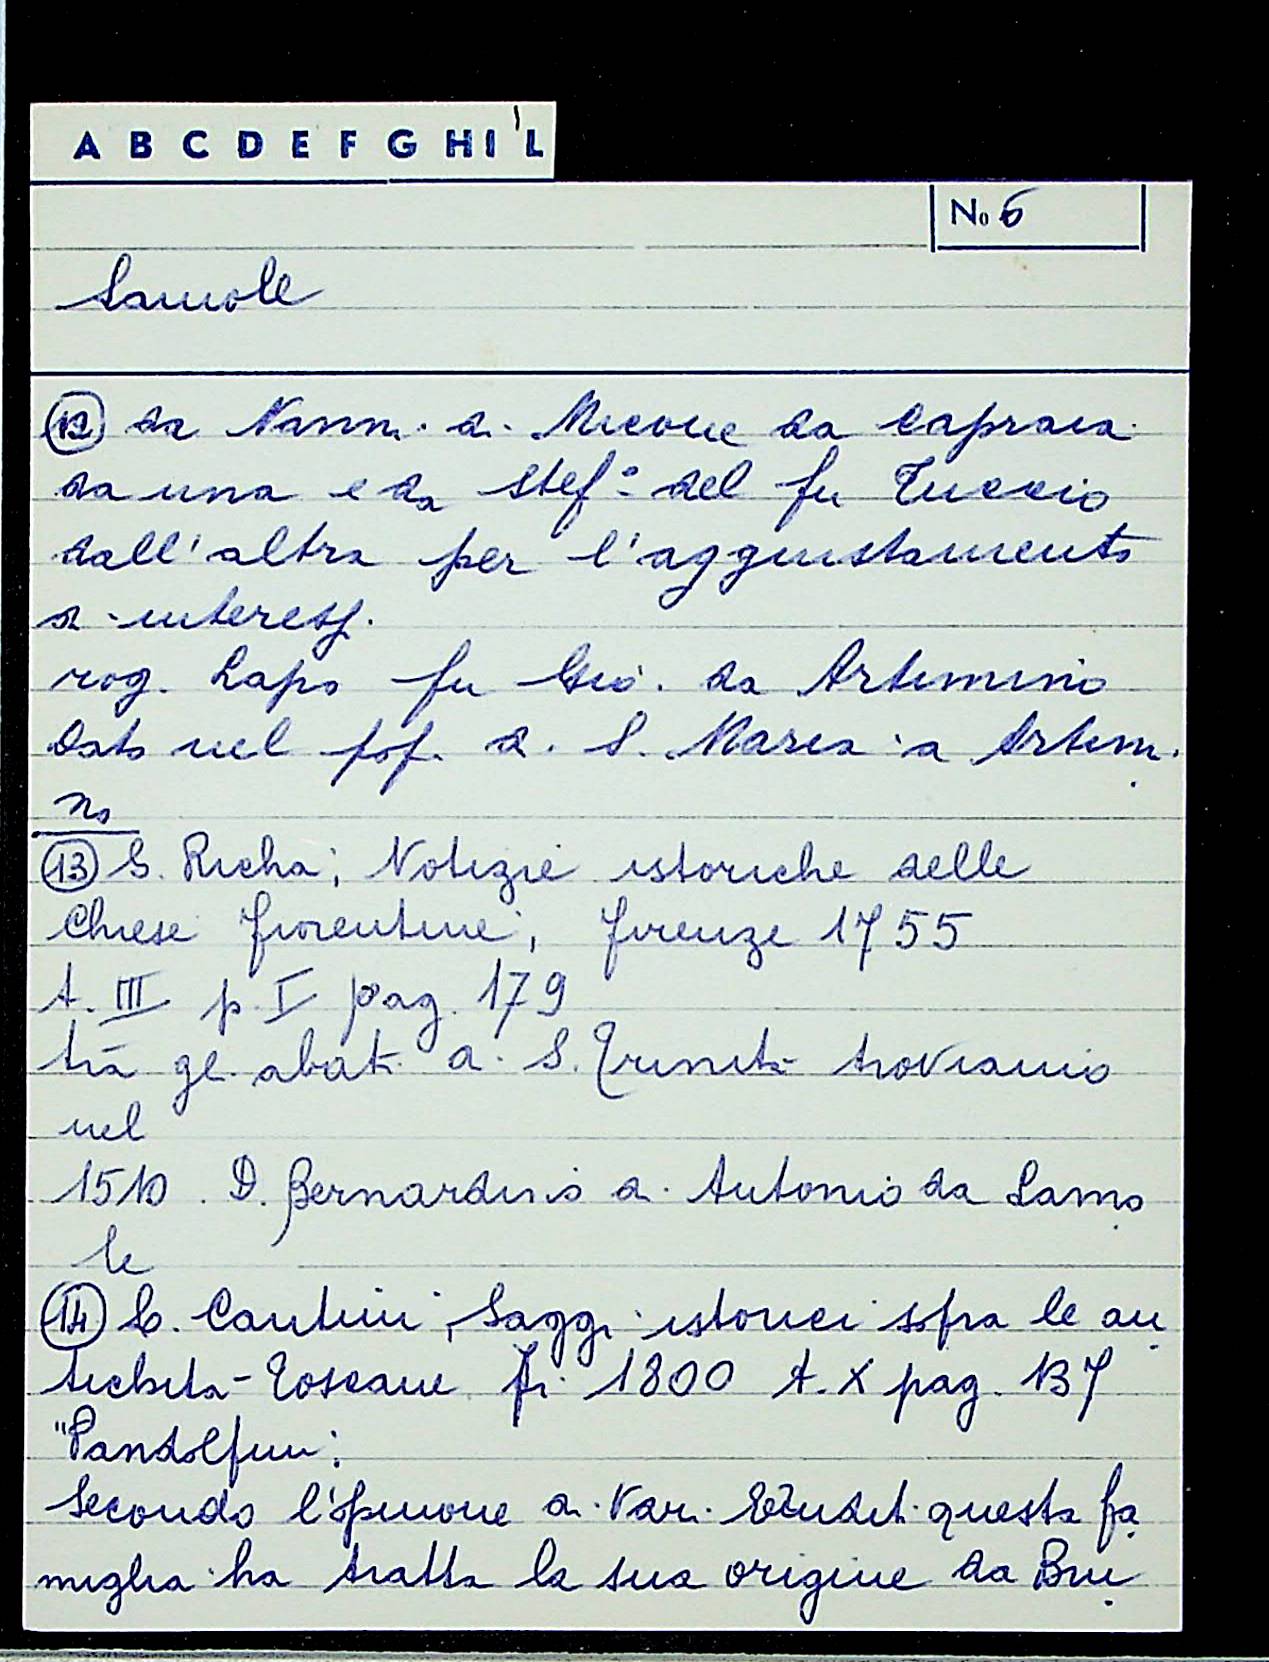 A B C D E F G H I L
No 6
Lamole
(12) da Nanni di Micone da Capraia
da una e da Stef.º del fu Tuccio
dall'altra per l'aggiustamento
di interessi.
rog. Lapo fu Gio. da Artimino
Dato nel pop. di S. Maria a Artimi
no
(13) G. Richa, Notizie istoriche delle
Chiese fiorentine, firenze 1755
t. III p. I pag. 179
tra gli abati di S. Trinità troviamo
nel
1510. D. Bernardino di Antonio da Lamo
le
(14) L. Cantini, Saggi istorici sopra le an
tichità Toscane Fi. 1800 t. X pag. 137
"Pandolfini:
Secondo l'opinione di vari eruditi questa fa
miglia ha tratta la sua origine da Bru